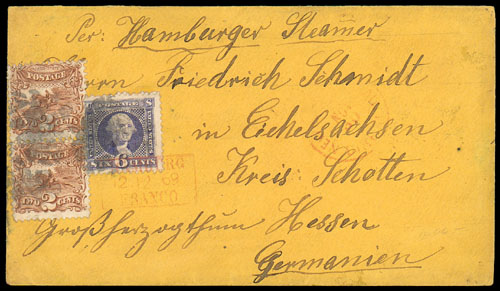 Per: Hamburger Steamer
Herrn Friedrich Schmidt
in Eichelsachsen
Kreis: Schotten
Großherzogthum Hessen
Germanien
POSTAGE
2
TWO CENTS
POSTAGE
2
TWO CENTS
POSTAGE
6
SIX CENTS
FRANCO